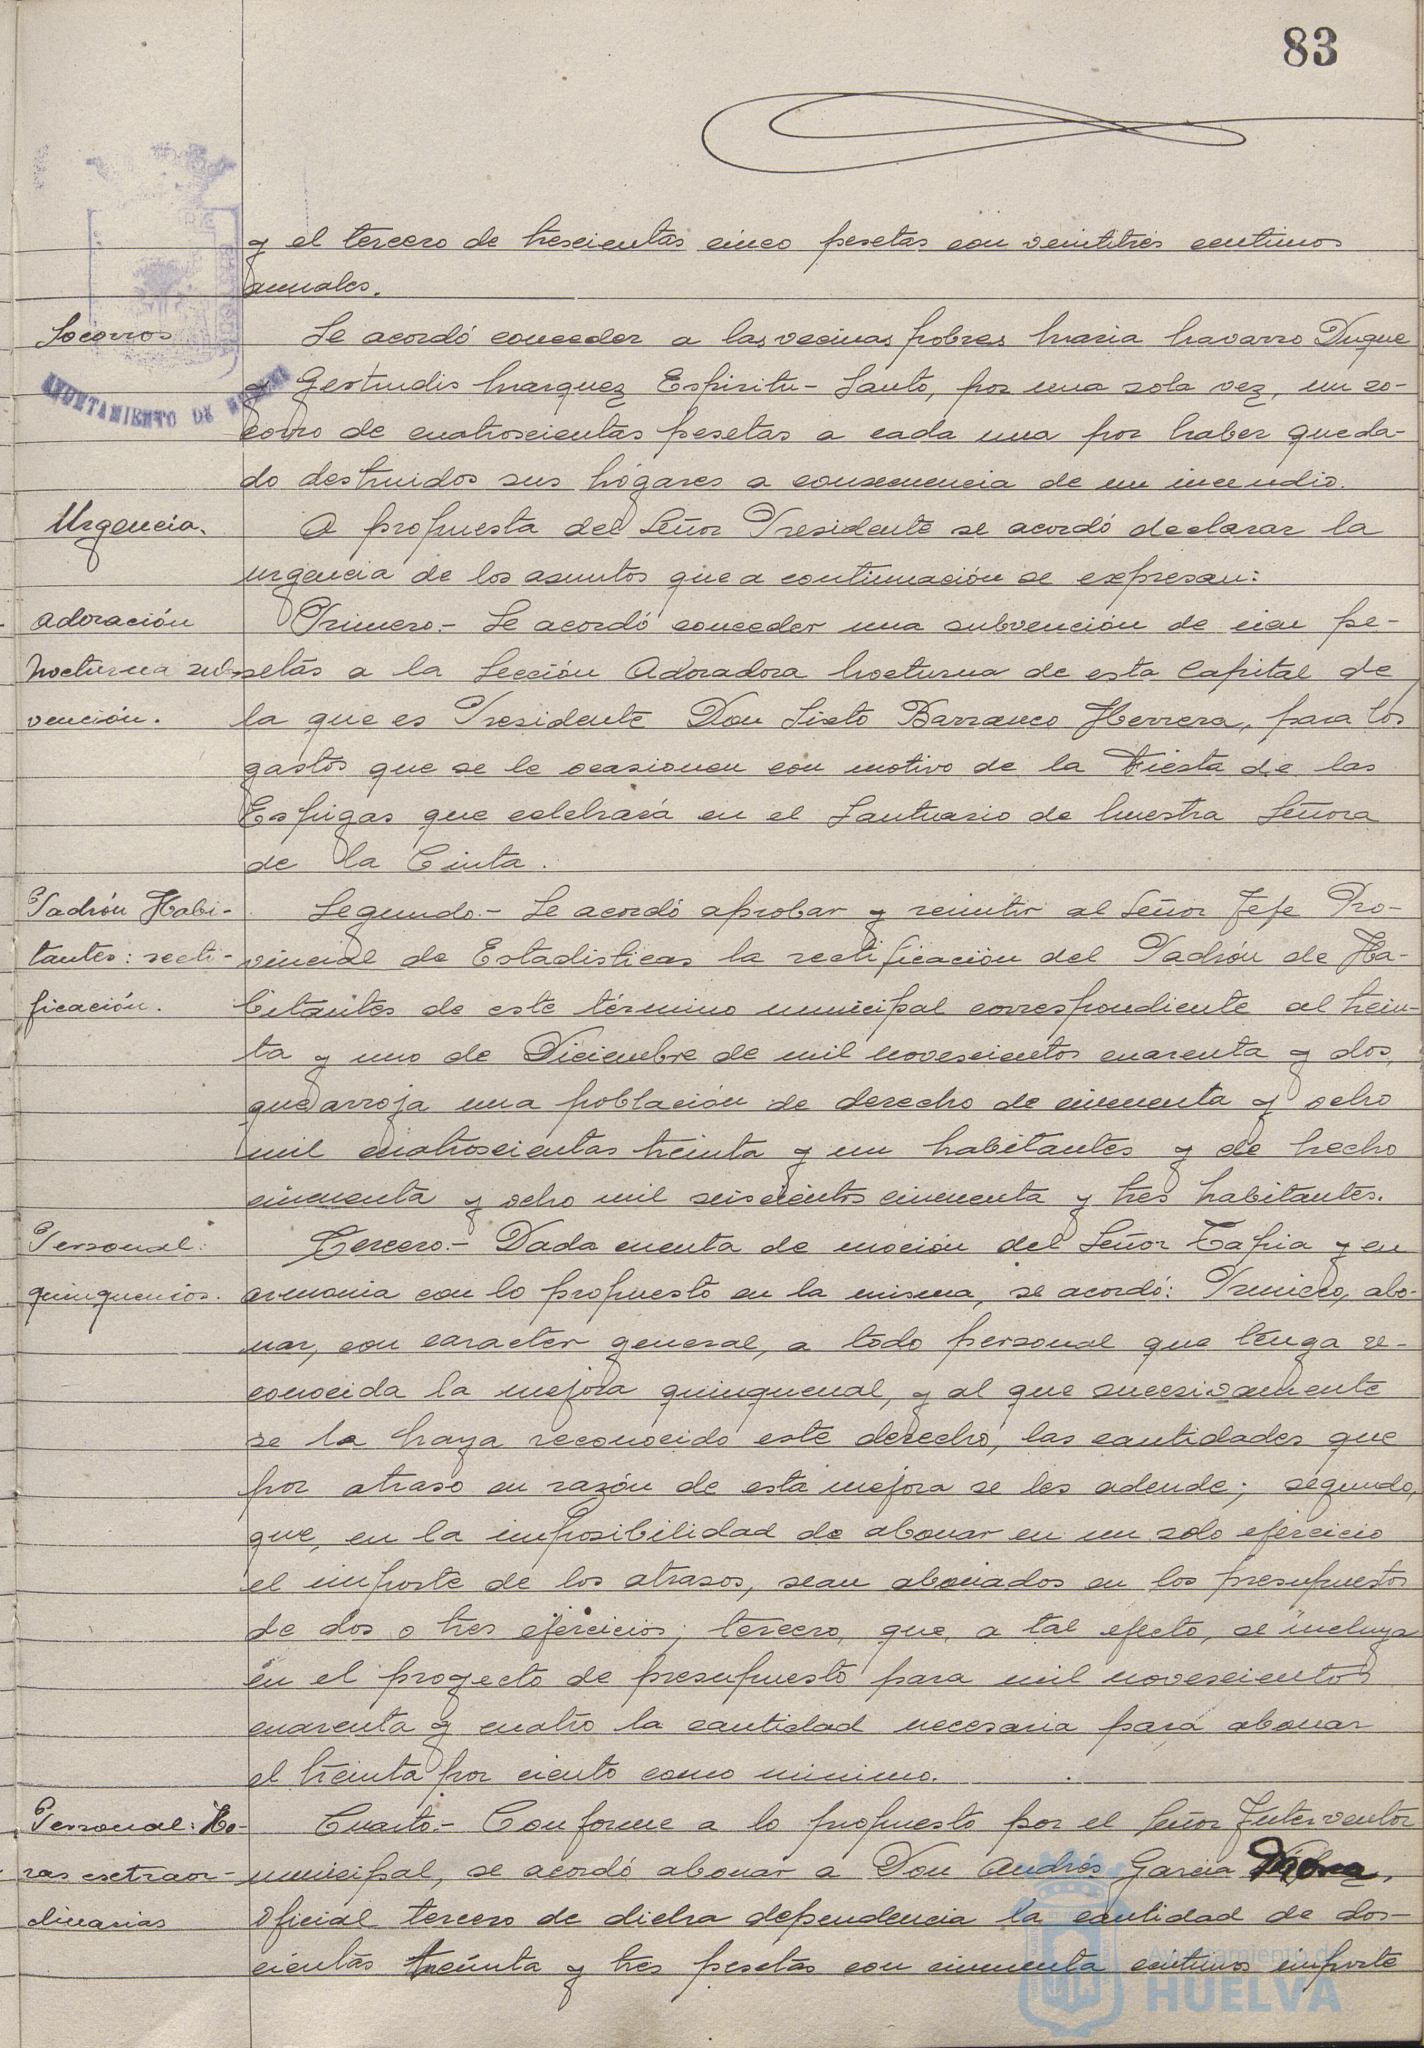 83
y el tercero de trescientas cinco pesetas con veintitrés centimos
anuales.
Socorros
Se acordó conceder a las vecinas pobres Maria Navarro Duque
y Gertrudis Marquez Espiritu-Santo, por una sola vez, un so-
AYUNTAMIENTO DE HUELVA
corro de cuatroscientas pesetas a cada una por haber queda-
do destruidos sus hogares a consecuencia de un incendio.
Urgencia.
A propuesta del Señor Presidente se acordó declarar la
urgencia de los asuntos que a continuación se expresan:
Adoración
Primero.- Se acordó conceder una subvención de cien pe-
Nocturna sub-
setas a la Sección Adoradora Nocturna de esta Capital de
vención.
la que es Presidente Don Sixto Barranco Herrera, para los
gastos que se le ocasionen con motivo de la Fiesta de las
Espigas que celebrará en el Santuario de Nuestra Señora
de la Cinta.
Padrón Habi-
Segundo.- Se acordó aprobar y remitir al Señor Jefe Pro-
tantes: recti-
vincial de Estadisticas la rectificación del Padrón de Ha-
ficación.
bitantes de este término municipal correspondiente al trein-
ta y uno de Diciembre de mil novescientos cuarenta y dos,
que arroja una población de derecho de cincuenta y ocho
mil cuatroscientas treinta y un habitantes y de hecho
cincuenta y ocho mil seiscientos cincuenta y tres habitantes.
Personal:
Tercero.- Dada cuenta de moción del Señor Tapia y en
quinquenios.
armonia con lo propuesto en la misma, se acordó: Primero, abo-
nar, con caracter general, a todo personal que tenga re-
conocida la mejora quinquenal, y al que sucesivamente
se la haya reconocido este derecho, las cantidades que
por atraso en razón de esta mejora se les adeude; segundo,
que, en la imposibilidad de abonar en un solo ejercicio
el importe de los atrasos, sean abonados en los presupuestos
de dos o tres ejercicios; tercero, que, a tal efecto, se incluya
en el proyecto de presupuesto para mil novescientos
cuarenta y cuatro la cantidad necesaria para abonar
el treinta por ciento como minimo.
Personal: Ho-
Cuarto.- Conforme a lo propuesto por el Señor Interventor
ras extraor-
municipal, se acordó abonar a Don Andrés Garcia
dinarias
Oficial tercero de dicha dependencia la cantidad de dos-
cientas treinta y tres pesetas con cincuenta centimos importe
Ayuntamiento de
HUELVA